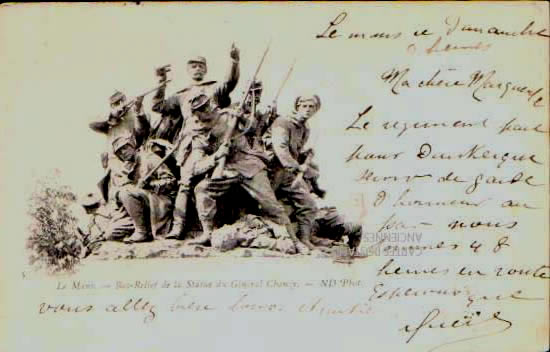 Le mans ce Dimanche
9 heures
Ma chère Marguerite
Le regiment part
pour Dunkerque
servir de garde
d'honneur au
nous
sommes 48
heures en route
Esperons que
Le Mans. — Bas-Relief de la Statue du Général Chanzy. — ND Phot.
vous allez bien
CARTES
ANCIENNES